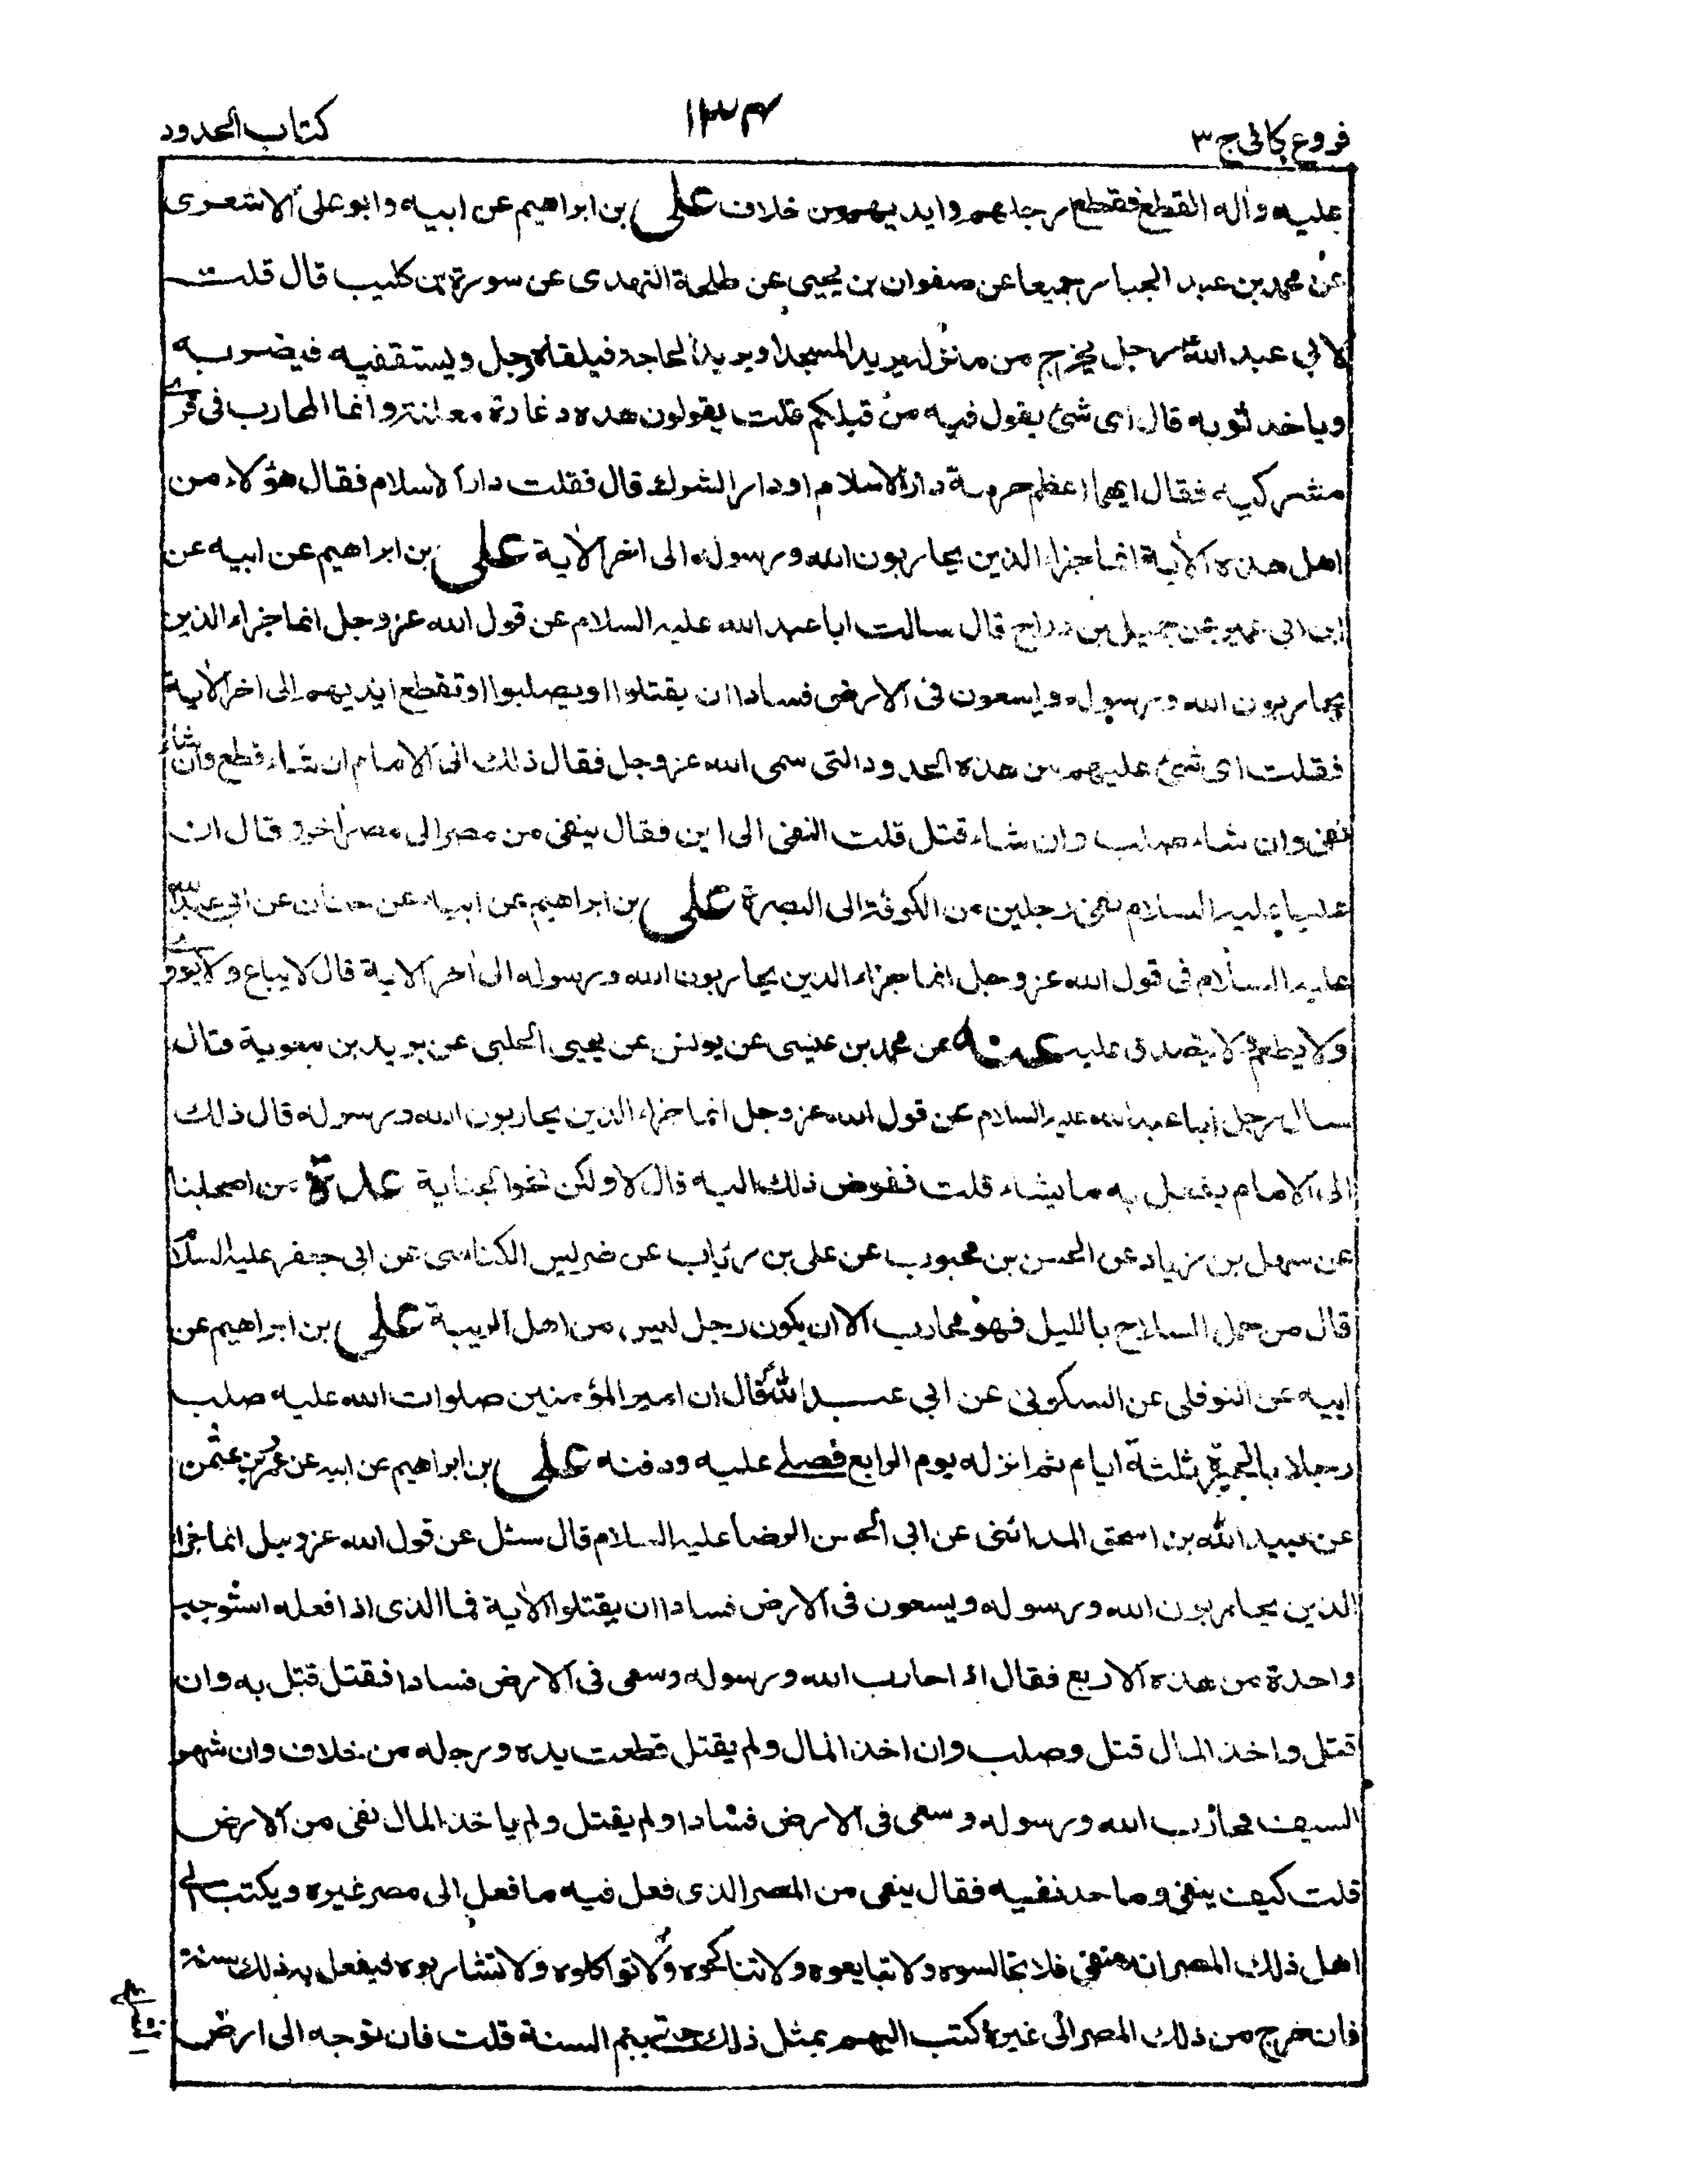 فروع كافی ج ٣
١٣٤
كتاب الحدود
عليه وآله القطع فقطع رجلهم وايديهم من خلاف علی بن ابراهيم عن ابيه وابو علی الاشعری
عن محمد بن عبد الجبار جميعا عن صفوان بن يحيی عن طلحة النهدی عن سورة بن كليب قال قلت
لابی عبد الله رجل يخرج من منزله يريد المسجد او يريد الحاجة فيلقاه رجل ويستقفيه فيضربه
وياخذ ثوبه قال ای شئ يقول فيه من قبلكم قلت يقولون هذه دغارة معلنة وانما المحارب فی قری
مشركيه فقال ايهما اعظم حرمة دار الاسلام او دار الشرك قال فقلت دار الاسلام فقال هؤلاء من
اهل هذه الآية انما جزاء الذين يحاربون الله ورسوله الی اخر الآية علی بن ابراهيم عن ابيه عن
ابن ابی عمير عن جميل بن دراج قال سالت ابا عبد الله عليه السلام عن قول الله عز وجل انما جزاء الذين
يحاربون الله ورسوله ويسعون فی الارض فسادا ان يقتلوا او يصلبوا او تقطع ايديهم الی اخر الآية
فقلت ای شئ عليهم من هذه الحدود التی سمی الله عز وجل فقال ذلك الی الامام ان شاء قطع وان شاء
نفی وان شاء صلب وان شاء قتل قلت النفی الی اين فقال ينفی من مصر الی مصر اخر وقال ان
عليا عليه السلام نفی رجلين من الكوفة الی البصرة علی بن ابراهيم عن ابيه عن حنان عن ابی عبد الله
عليه السلام فی قول الله عز وجل انما جزاء الذين يحاربون الله ورسوله الی اخر الاية قال لا يباع ولا يؤوی
ولا يطعم ولا يتصدق عليه عنه عن محمد بن عيسی عن يونس عن يحيی الحلبی عن بريد بن معوية قال
سال رجل ابا عبد الله عليه السلام عن قول الله عز وجل انما جزاء الذين يحاربون الله ورسوله قال ذلك
الی الامام يفعل به ما يشاء قلت ففوض ذلك اليه قال لا ولكن نحو الجناية عدة من اصحابنا
عن سهل بن زياد عن الحسن بن محبوب عن علی بن رئاب عن ضريس الكناسی عن ابی جعفر عليه السلام
قال من حمل السلاح بالليل فهو محارب الا ان يكون رجل ليس من اهل الريبة علی بن ابراهيم عن
ابيه عن النوفلی عن السكونی عن ابی عبد الله قال ان امير المؤمنين صلوات الله عليه صلب
رجلا بالحيرة ثلثة ايام ثم انزله يوم الرابع فصلی عليه ودفنه علی بن ابراهيم عن ابيه عن عمرو بن عثمن
عن عبيد الله بن اسحق المدائنی عن ابی الحسن الرضا عليه السلام قال سئل عن قول الله عز وجل انما جزاء
الذين يحاربون الله ورسوله ويسعون فی الارض فسادا ان يقتلوا الآية فما الذی اذا فعله استوجب
واحدة من هذه الاربع فقال اذا حارب الله ورسوله وسعی فی الارض فسادا فقتل قتل به وان
قتل واخذ المال قتل وصلب وان اخذ المال ولم يقتل قطعت يده ورجله من خلاف وان شهر
السيف فحارب الله ورسوله وسعی فی الارض فسادا ولم يقتل ولم ياخذ المال نفی من الارض
قلت كيف ينفی وما حد نفيه فقال ينفی من المصر الذی فعل فيه ما فعل الی مصر غيره ويكتب الی
اهل ذلك المصر انه منفی فلا تجالسوه ولا تبايعوه ولا تناكحوه ولا تواكلوه ولا تشاربوه فيفعل به ذلك سنة
فان خرج من ذلك المصر الی غيره كتب اليهم بمثل ذلك حتی يتم السنة قلت فان توجه الی ارض